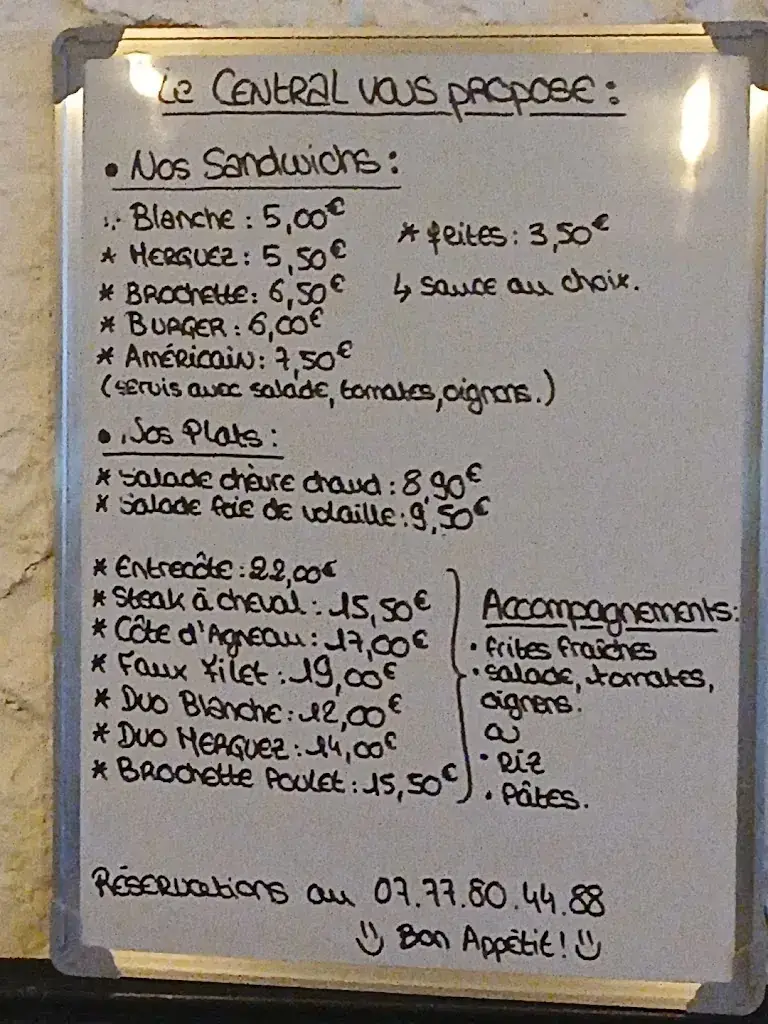 Le Central vous propose :
• Nos Sandwichs :
* Blanche : 5,00€
* Merguez : 5,50€
* Brochette : 6,50€
* Burger : 6,00€
* Américain : 7,50€
(servis avec salade, tomates, oignons.)
* frites : 3,50€
↳ sauce au choix.
• Nos Plats :
* Salade chèvre chaud : 8,90€
* Salade foie de volaille : 9,50€
* Entrecôte : 22,00€
* Steak à cheval : 15,50€
* Côte d'Agneau : 17,00€
* Faux Filet : 19,00€
* Duo Blanche : 12,00€
* Duo Merguez : 14,00€
* Brochette Poulet : 15,50€
Accompagnements :
• frites fraîches
• salade, tomates,
oignons.
ou
• Riz
• Pâtes.
Réservations au 07.77.80.44.88
Bon Appétit !